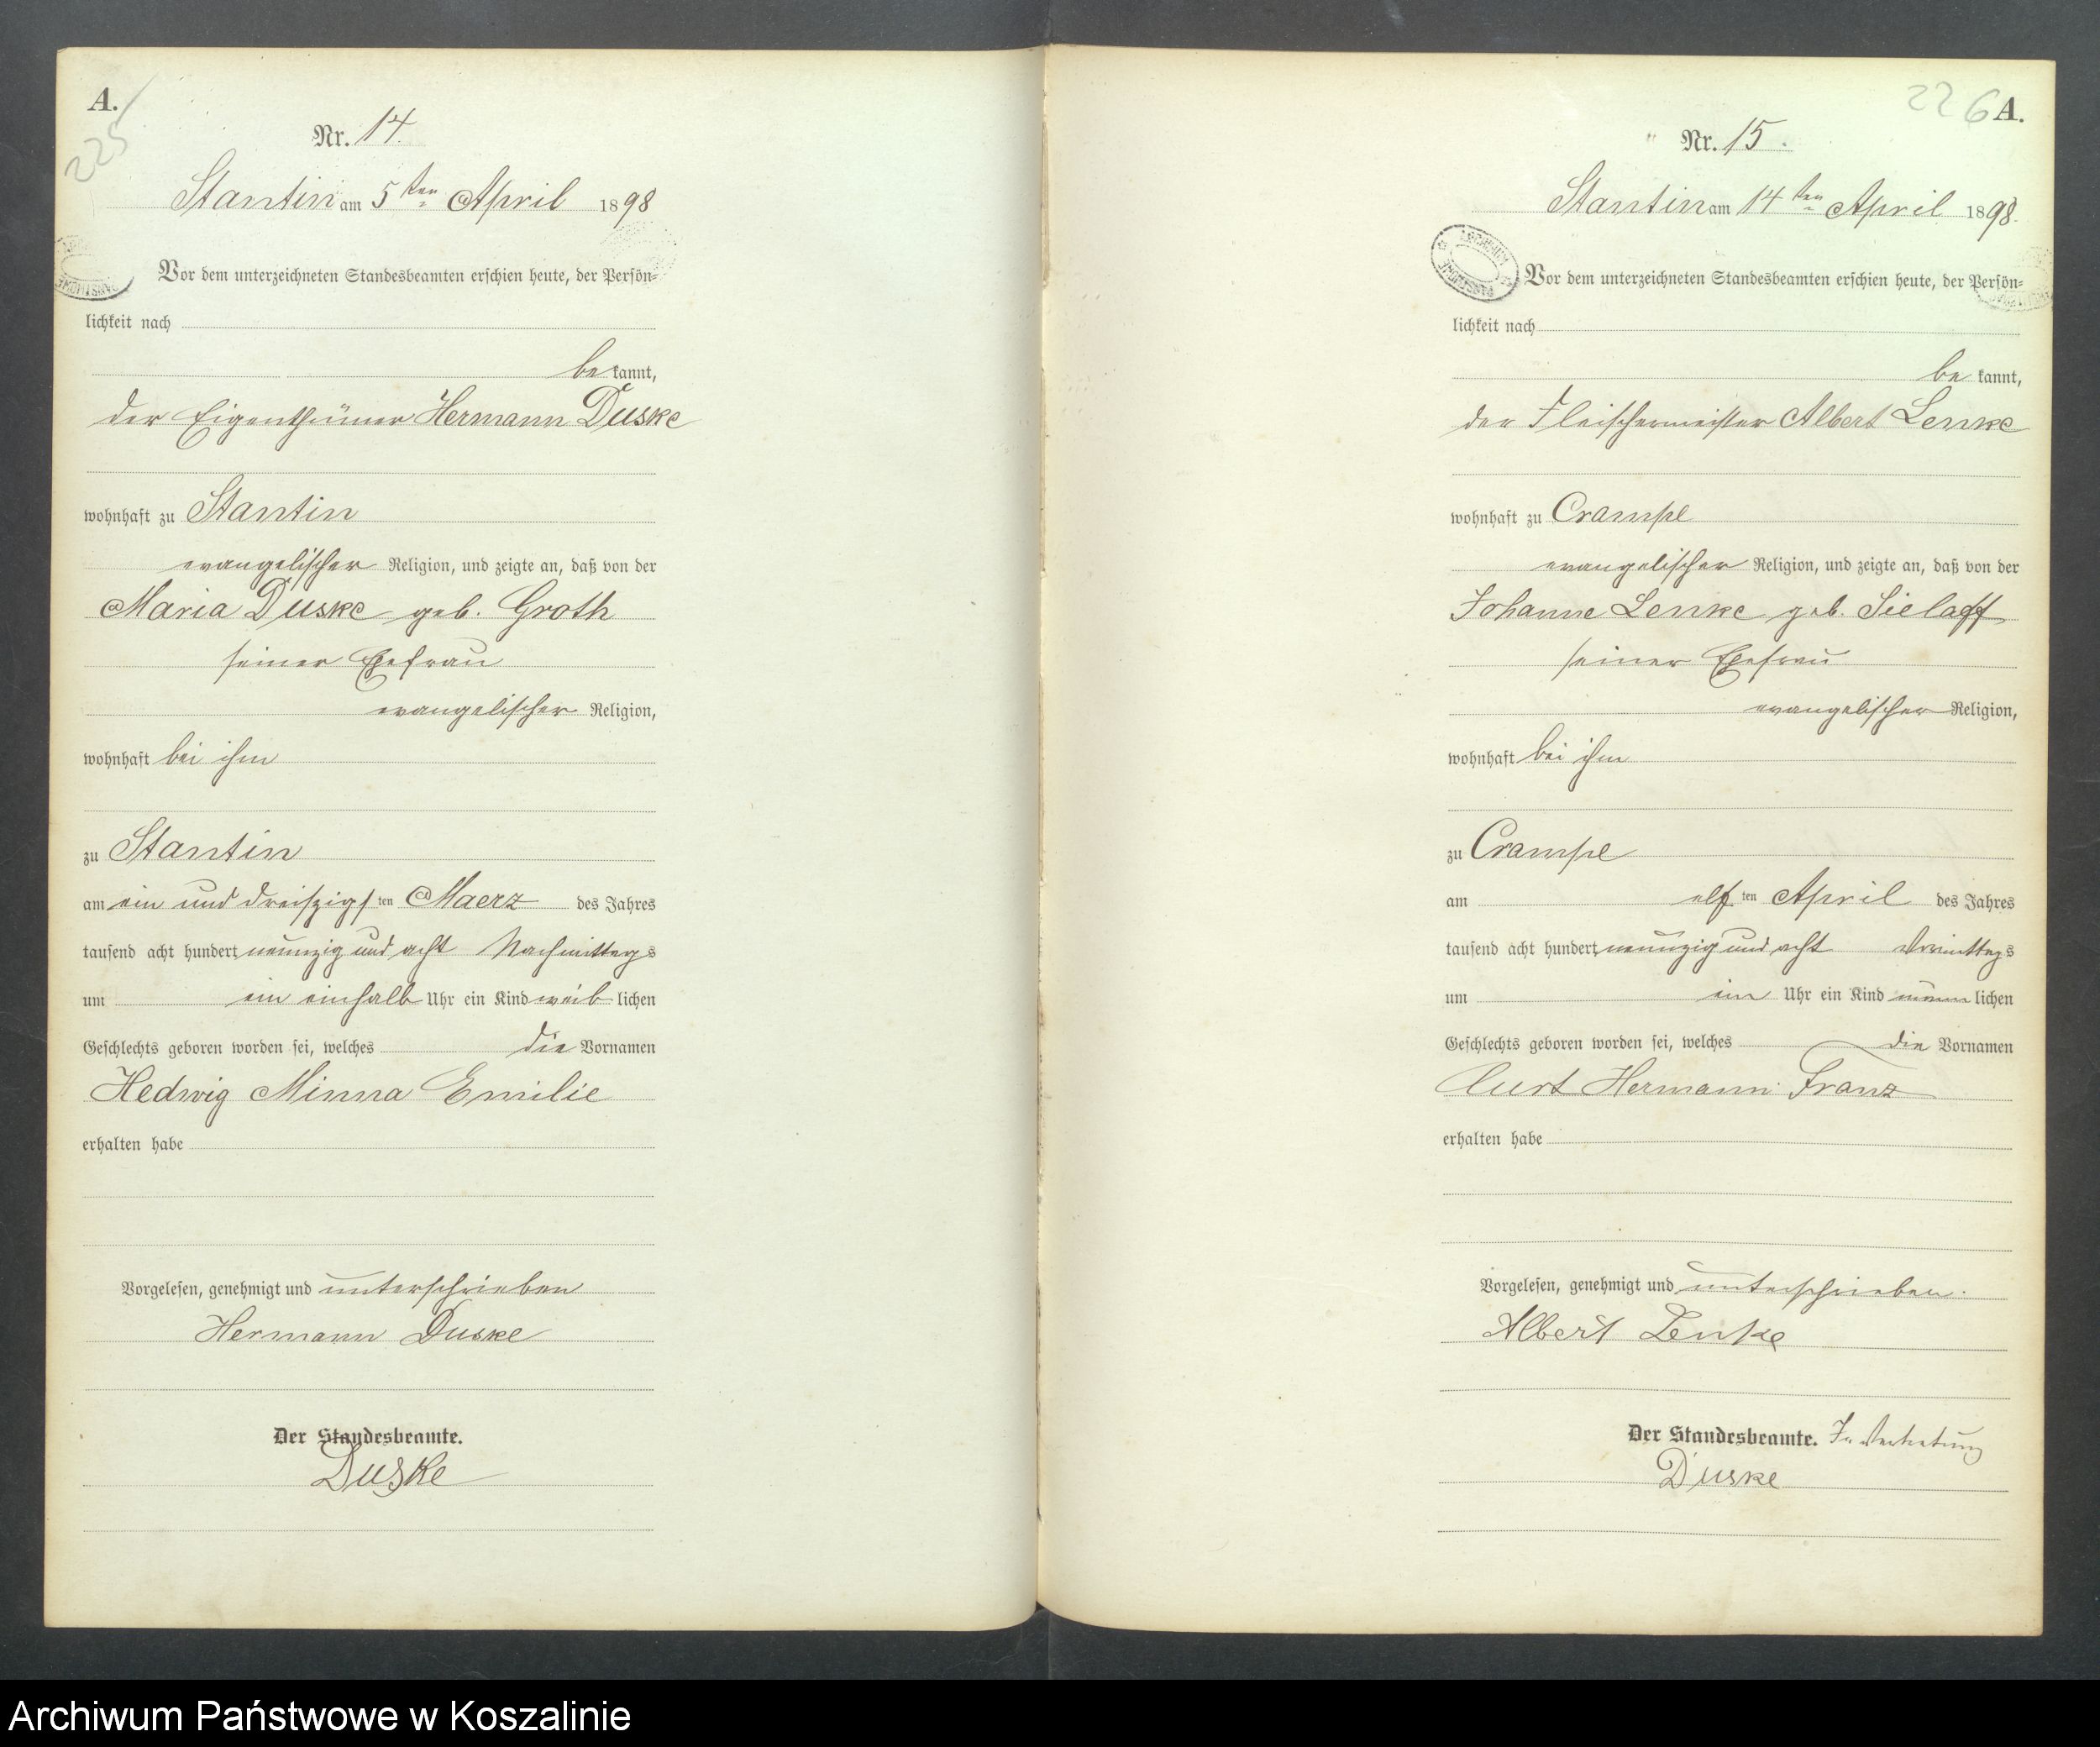 A.
225
Nr. 14.
Stantin am 5ten April 1898
Vor dem unterzeichneten Standesbeamten erschien heute, der Persön=
lichkeit nach
be kannt,
der Eigenthümer Hermann Duske
wohnhaft zu Stantin
evangelischer Religion, und zeigte an, daß von der
Maria Duske geb. Groth
seiner Ehefrau
evangelischer Religion,
wohnhaft bei ihm
zu Stantin
am ein und dreiszigsten Maerz des Jahres
tausend acht hundert neunzig und acht Nachmittags
um ein einhalb Uhr ein Kind weiblichen
Geschlechts geboren worden sei, welches die Vornamen
Hedwig Minna Emilie
erhalten habe
Vorgelesen, genehmigt und unterschrieben
Hermann Duske
Der Standesbeamte.
Duske
226
A.
Nr. 15.
Stantin am 14ten April 1898.
Vor dem unterzeichneten Standesbeamten erschien heute, der Persön=
lichkeit nach
be kannt,
der Fleischermeister Albert Lenke
wohnhaft zu Crampe
evangelischer Religion, und zeigte an, daß von der
Johanne Lenke geb. Sielaff
seiner Ehefrau
evangelischer Religion,
wohnhaft bei ihm
zu Crampe
am elften April des Jahres
tausend acht hundert neunzig und acht Vormittags
um ein Uhr ein Kind männlichen
Geschlechts geboren worden sei, welches die Vornamen
Curt Hermann Franz
erhalten habe
Vorgelesen, genehmigt und unterschrieben.
Albert Lenke
Der Standesbeamte. In Vertretung
Duske
Archiwum Państwowe w Koszalinie